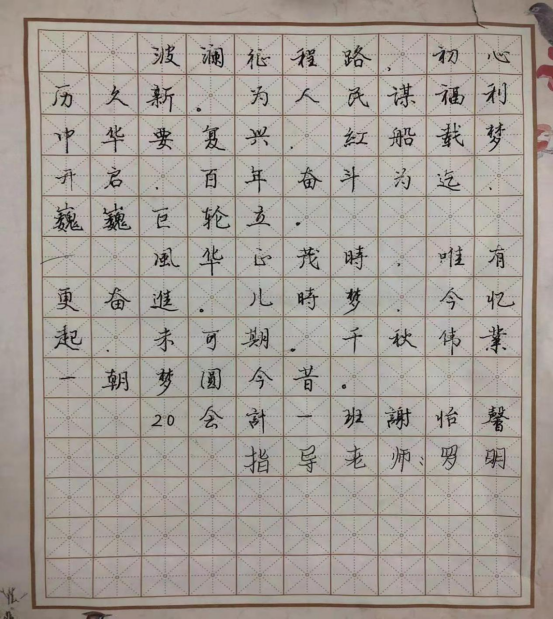 波澜征程路，初心
历久新。为人民谋福利
中华要复兴．紅船载梦
开启．百年奋斗为迄．
巍巍巨轮立。
風华正茂時．唯有
更奋進。儿時梦．今忆
起．未可期。千秋伟業
一朝梦圆今昔。
20会計一班謝怡馨
指导老师：罗明